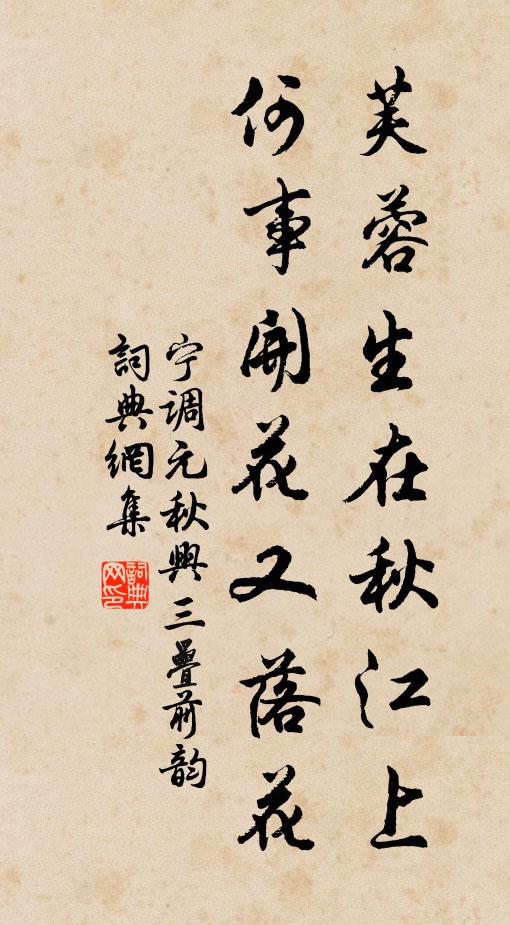 芙蓉生在秋江上
何事開花又落花
宁调元秋興三疊前韵
詞典網集
詞典网印